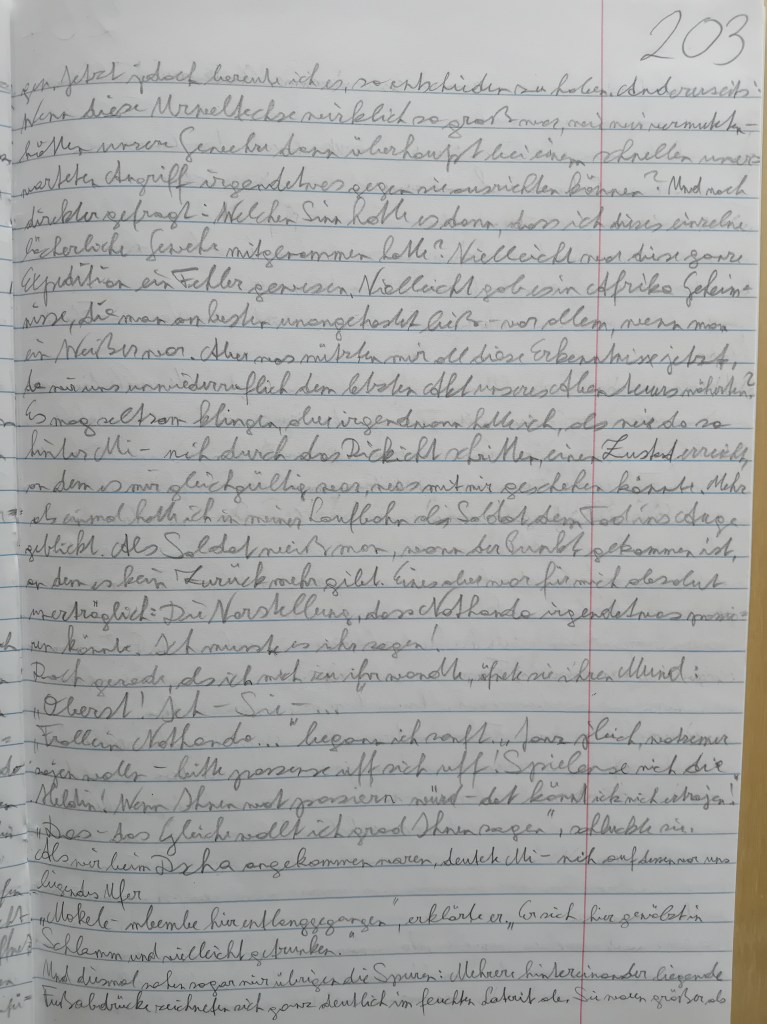 203
gen. Jetzt jedoch bereute ich es, so entschieden zu haben. Anderseits:
Wenn diese Urweltechse wirklich so groß war, wie wir vermuteten –
hätten unsere Gewehre dann überhaupt bei einem schnellen uner-
warteten Angriff irgendetwas gegen sie ausrichten können? Und noch
direkter gefragt: Welchen Sinn hatte es dann, dass ich dieses einzelne
lächerliche Gewehr mitgenommen hatte? Vielleicht war diese ganze
Expedition ein Fehler gewesen. Vielleicht gab es in Afrika Geheim-
nisse, die man am besten unangetastet ließ – vor allem, wenn man
ein Weißer war. Aber was nützten mir all diese Erkenntnisse jetzt,
da wir uns unwiederruflich dem letzten Akt unseres Abenteuers näherten?
Es mag seltsam klingen, aber irgendwann hatte ich, als wir da so
hinter Mi-nih durch das Dickicht schritten, einen Zustand erreicht,
an dem es mir gleichgültig war, was mit mir geschehen könnte. Mehr
als einmal hatte ich in meiner Laufbahn als Soldat dem Tod ins Auge
geblickt. Als Soldat weiß man, wann der Punkt gekommen ist,
an dem es kein Zurück mehr gibt. Eines aber war für mich absolut
unerträglich: Die Vorstellung, dass Nothando irgendetwas passie-
ren könnte. Ich musste es ihr sagen!
Doch gerade, als ich mich zu ihr wandte, öffnete sie ihren Mund:
„Oberst! Ich – Sie – ..."
„Frollein Nothando..." begann ich sanft. „Janz gleich, wat se mer
sajen wolln – bitte passense uff sich uff! Spielense nich die
Heldin! Wenn Ihnen wat passiern würd – det könnt ick nich ertrajen!"
„Das – das Gleiche wollt ich grad Ihnen sagen", schluckte sie.
Als wir beim Dscha angekommen waren, deutete Mi-nih auf dessen vor uns
liegendes Ufer.
„Mokele-mbembe hier entlanggegangen", erklärte er. „Er sich hier gewälzt in
Schlamm und vielleicht getrunken."
Und diesmal sahen sogar wir übrigen die Spuren: Mehrere hintereinander liegende
Fußabdrücke zeichneten sich ganz deutlich im feuchten Laterit ab. Sie waren größer als